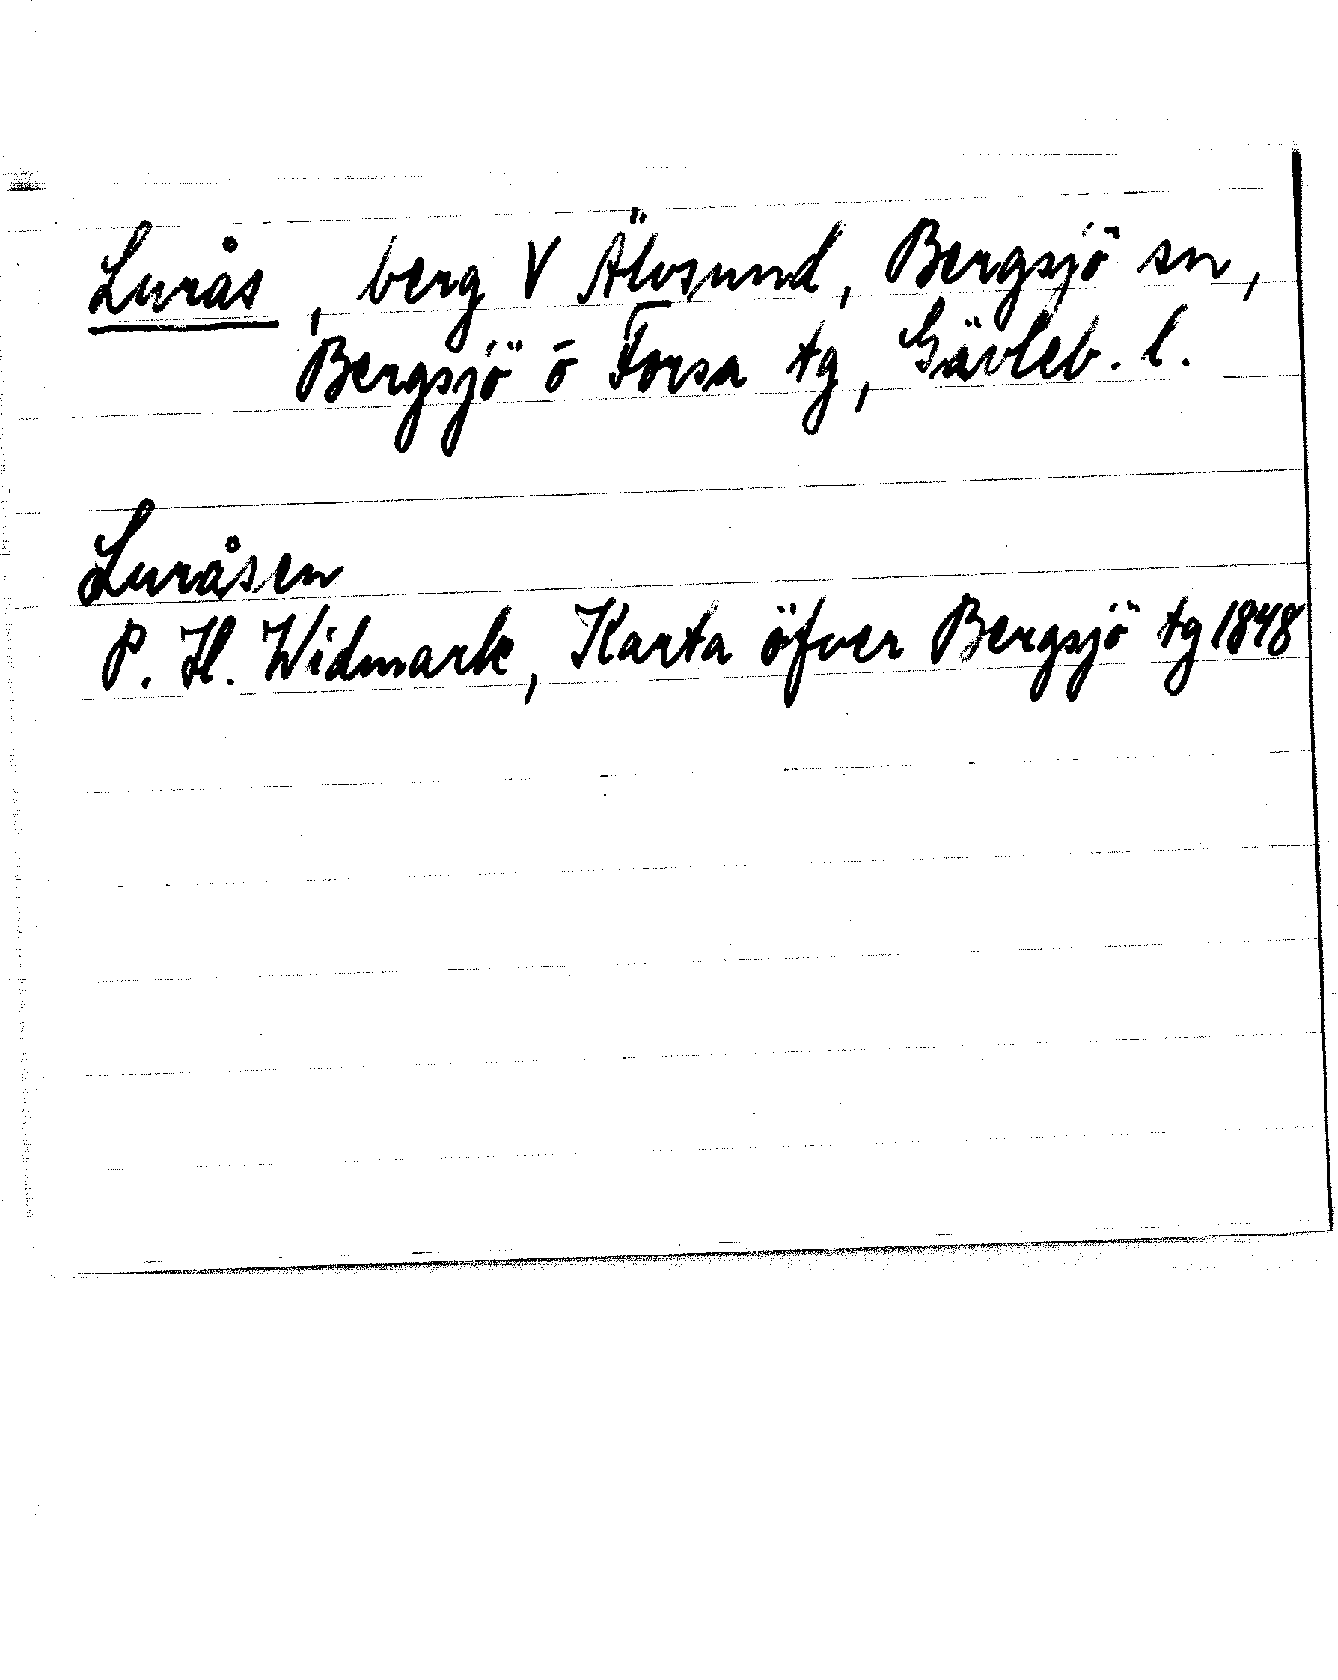 Lurås, berg V Älvsund, Bergsjö sn,
Bergsjö o Forsa tg, Gävleb. l.
Luråsen
P. H. Widmark, Karta öfver Bergsjö tg 1848